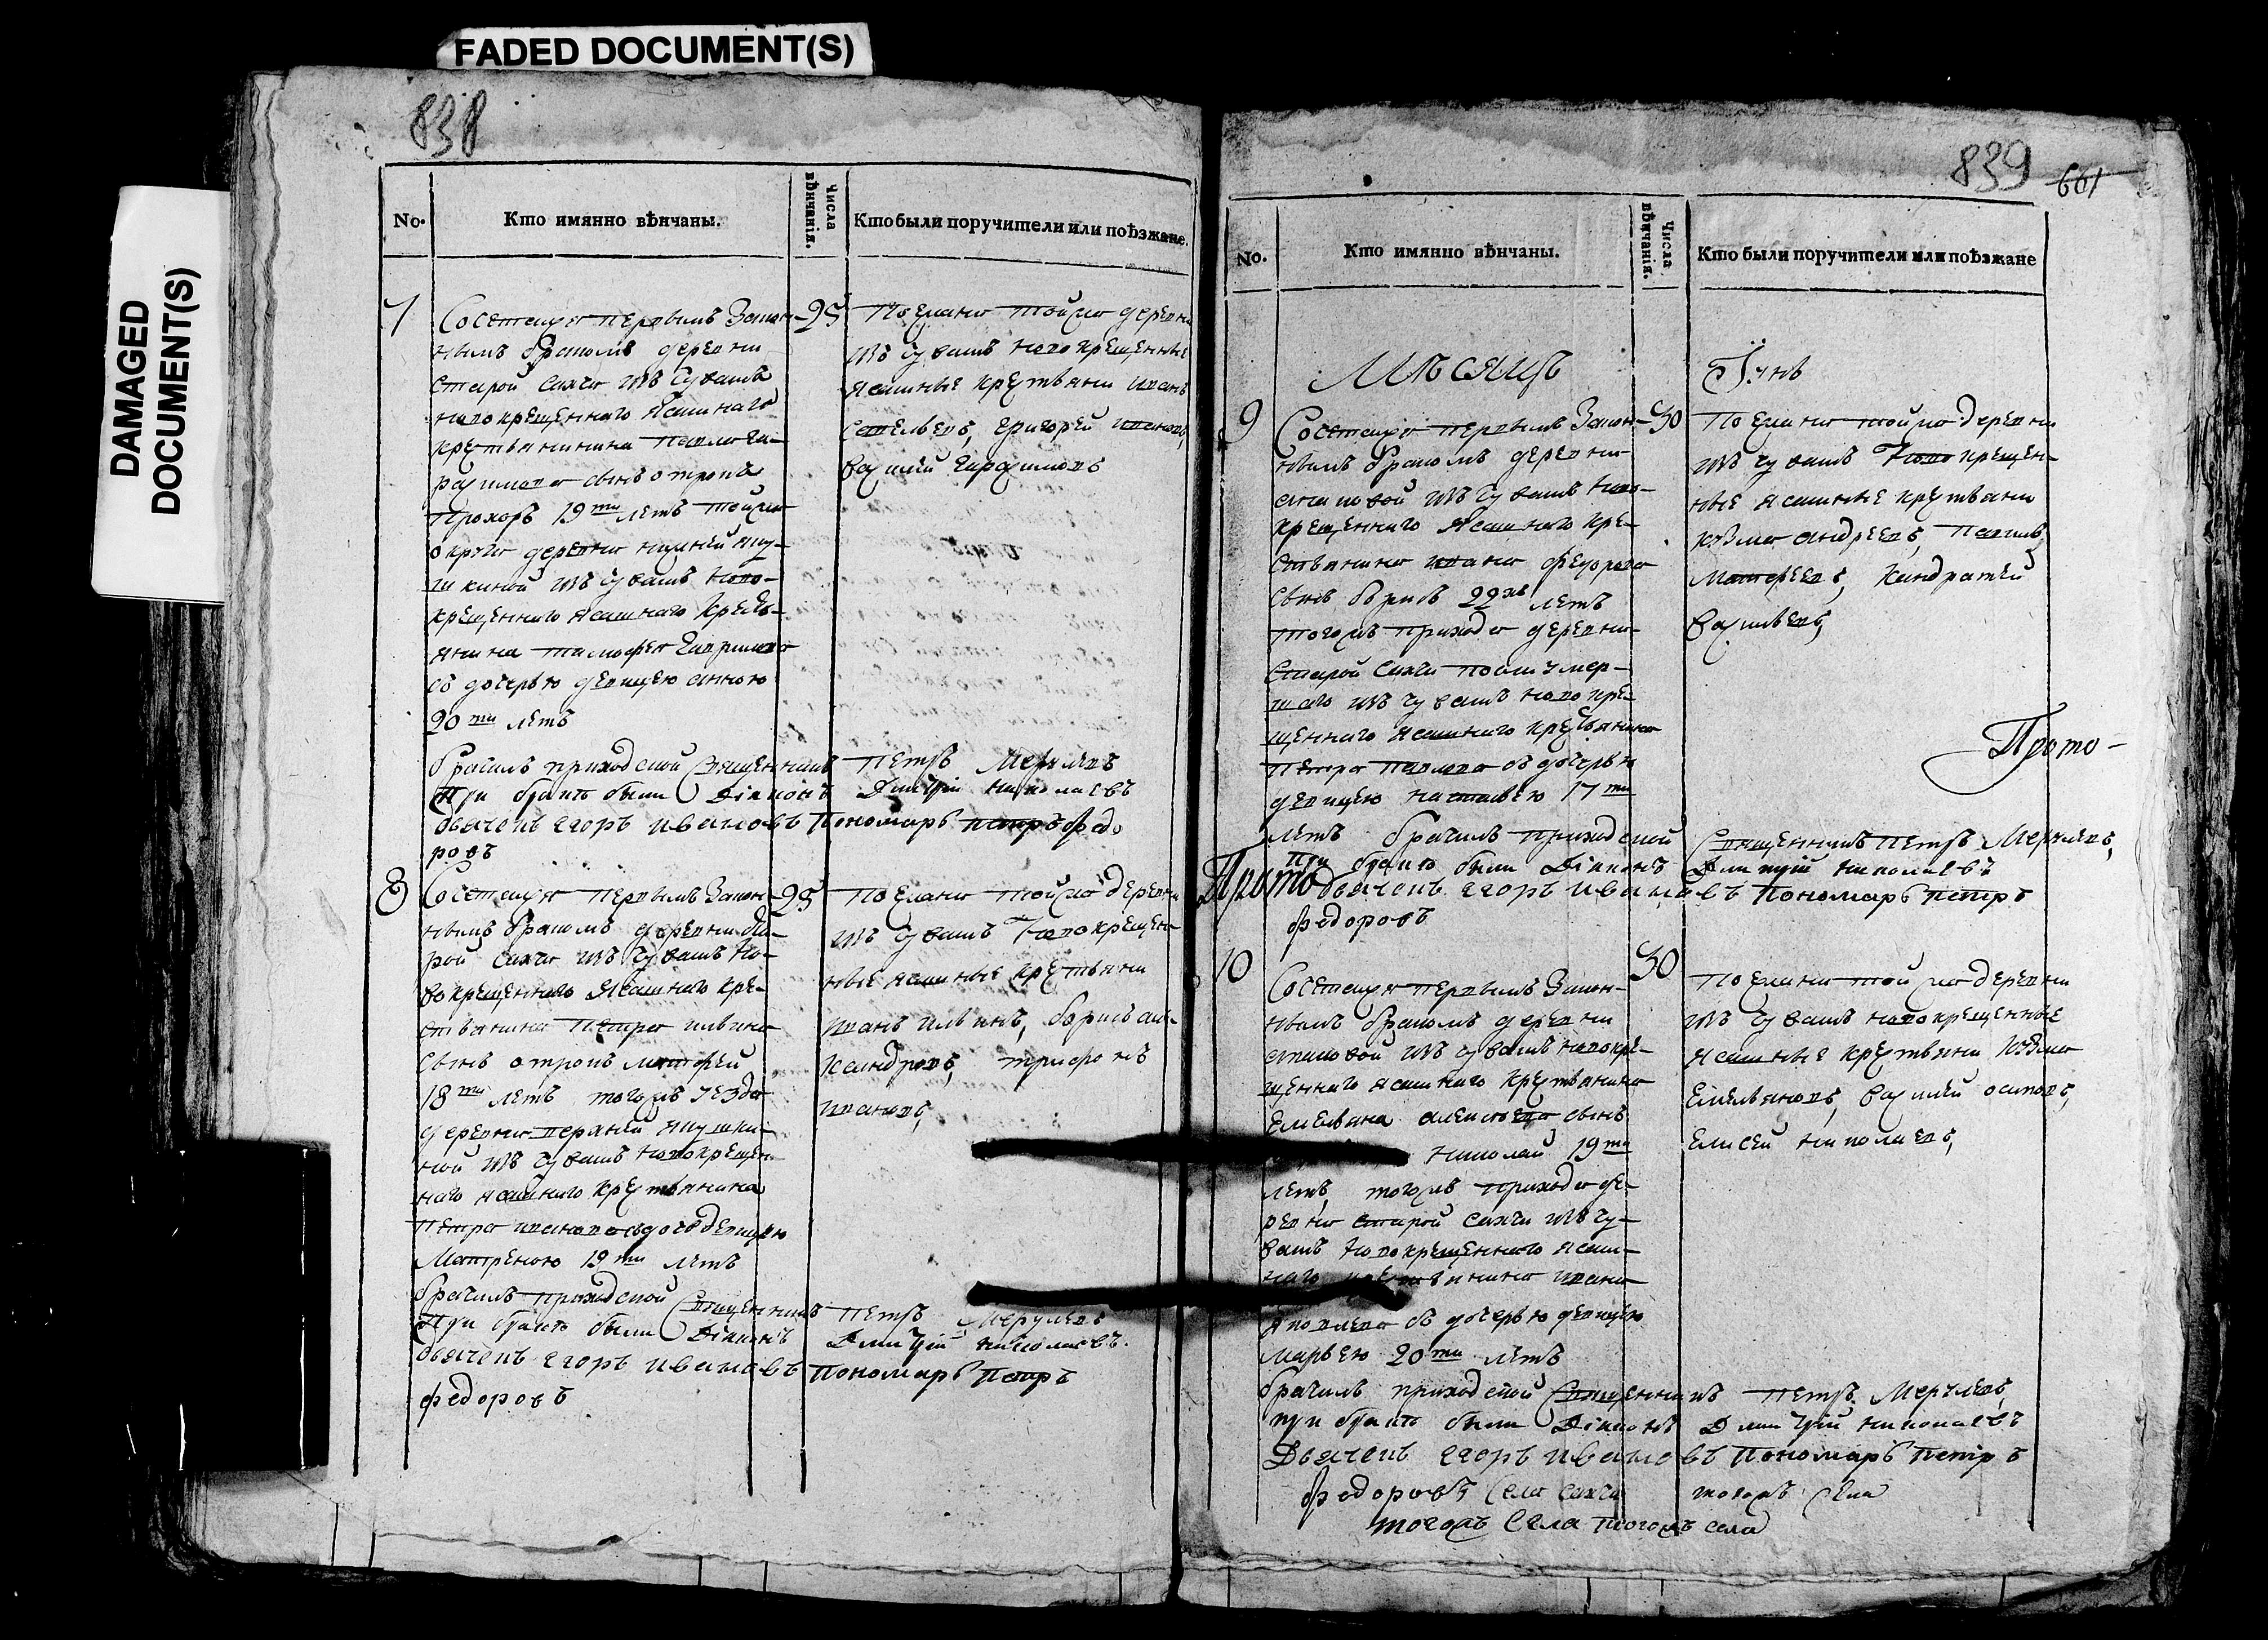 FADED DOCUMENT(S)
DAMAGED
DOCUMENT(S)
838
No.
Кто имянно вѣнчаны.
Числа
вѣнчанія.
Кто были поручители или поѣзжане.
7
Сочетался первымъ закон-
25
нымъ бракомъ деревни
старой Сахчи изъ чувашъ
новокрещеннаго ясашнаго
крестьянина Павла Га-
расимова сынъ отрокъ
Прохоръ 19ти летъ тойже
округи деревни нижней Яку-
шкиной изъ чувашъ ново-
крещеннаго ясашнаго кресть-
янина Тимофея Гаврилова
съ дочерью девицею Анною
20ти летъ
Поезжане тойже деревни
изъ чувашъ новокрещенные
ясашные крестьяни Иванъ
Савельевъ, Григорей Ивановъ,
Василей Гарасимовъ
брачилъ приходской Священникъ Петръ Меркулевъ
При бракѣ были Дїаконъ Димитрїй Николаевъ
дьячекъ Егоръ Ивановъ Пономарь Петръ Федо
ровъ
8
Сочетался первымъ закон-
25
нымъ бракомъ деревни Ста-
рой Сахчи изъ чувашъ но-
вокрещеннаго ясашнаго кре-
стьянина Петра Ильина
сынъ отрокъ Матфей
18ти летъ тогожъ уезда
деревни верхней Якушки-
ной изъ чувашъ новокрещен-
наго ясашнаго крестьянина
Петра Иванова съ доч девицею
Матреною 19ти летъ
Поезжане тойже деревни
изъ чувашъ Новокрещен-
ные ясашные крестьяни
Иванъ Ильинъ, Борисъ Але-
ксандровъ, Трифонъ
Ивановъ,
брачилъ приходской Священникъ Петръ Меркулевъ
При бракѣ были Дїаконъ Димитрїй Николаевъ.
дьячекъ Егоръ Ивановъ Пономарь Петръ
Федоровъ
839
661
No.
Кто имянно вѣнчаны.
Числа
вѣнчанія.
Кто были поручители или поѣзжане
Мѣсяцъ
Їунь
9
Сочетался первымъ закон-
30
нымъ бракомъ деревни
изъ чувашъ ново-
крещеннаго ясашнаго кре-
стьянина Ивана Федорова
сынъ Борисъ 22хъ летъ
тогожъ прихода деревни
Старой Сахчи после умер-
шаго изъ чувашъ новокре-
щеннаго ясашнаго крестьянина
Петра Павлова съ дочерью
девицею Настасьею 17ти
летъ
Поезжане тойже деревни
изъ чувашъ Новокрещен-
ные ясашные крестьяни
Кузма Андреевъ, Павилъ
Матфеевъ, Кандратей
Васильевъ,
Прото-
брачилъ приходской Священникъ Петръ Меркулевъ,
при бракѣ были Дїаконъ Димитрїй Николаевъ
Прото
дьячекъ Егоръ Ивановъ Пономарь Петръ
Федоровъ
10
Сочетался первымъ закон-
30
нымъ бракомъ деревни
изъ чувашъ новокре-
щеннаго ясашнаго крестьянина
Емельяна Алексеева сынъ
Николай 19ти
летъ, тогожъ прихода де-
ревни старой Сахчи изъ чу-
вашъ новокрещеннаго ясаш-
наго крестьянина Ивана
Яковлева съ дочерью девицею
Марьею 20ти летъ
Поезжане тойже деревни
изъ чувашъ новокрещенные
ясашные крестьяни Кузма
Емельяновъ, Василей Осиповъ,
Елисей Николаевъ,
брачилъ приходской Священникъ Петръ Меркулевъ,
при бракѣ были Дїаконъ Димитрїй Николаевъ
Дьячекъ Егоръ Ивановъ Пономарь Петръ
Федоровъ Села Сахчи тогожъ Села
тогожъ Села тогожъ села